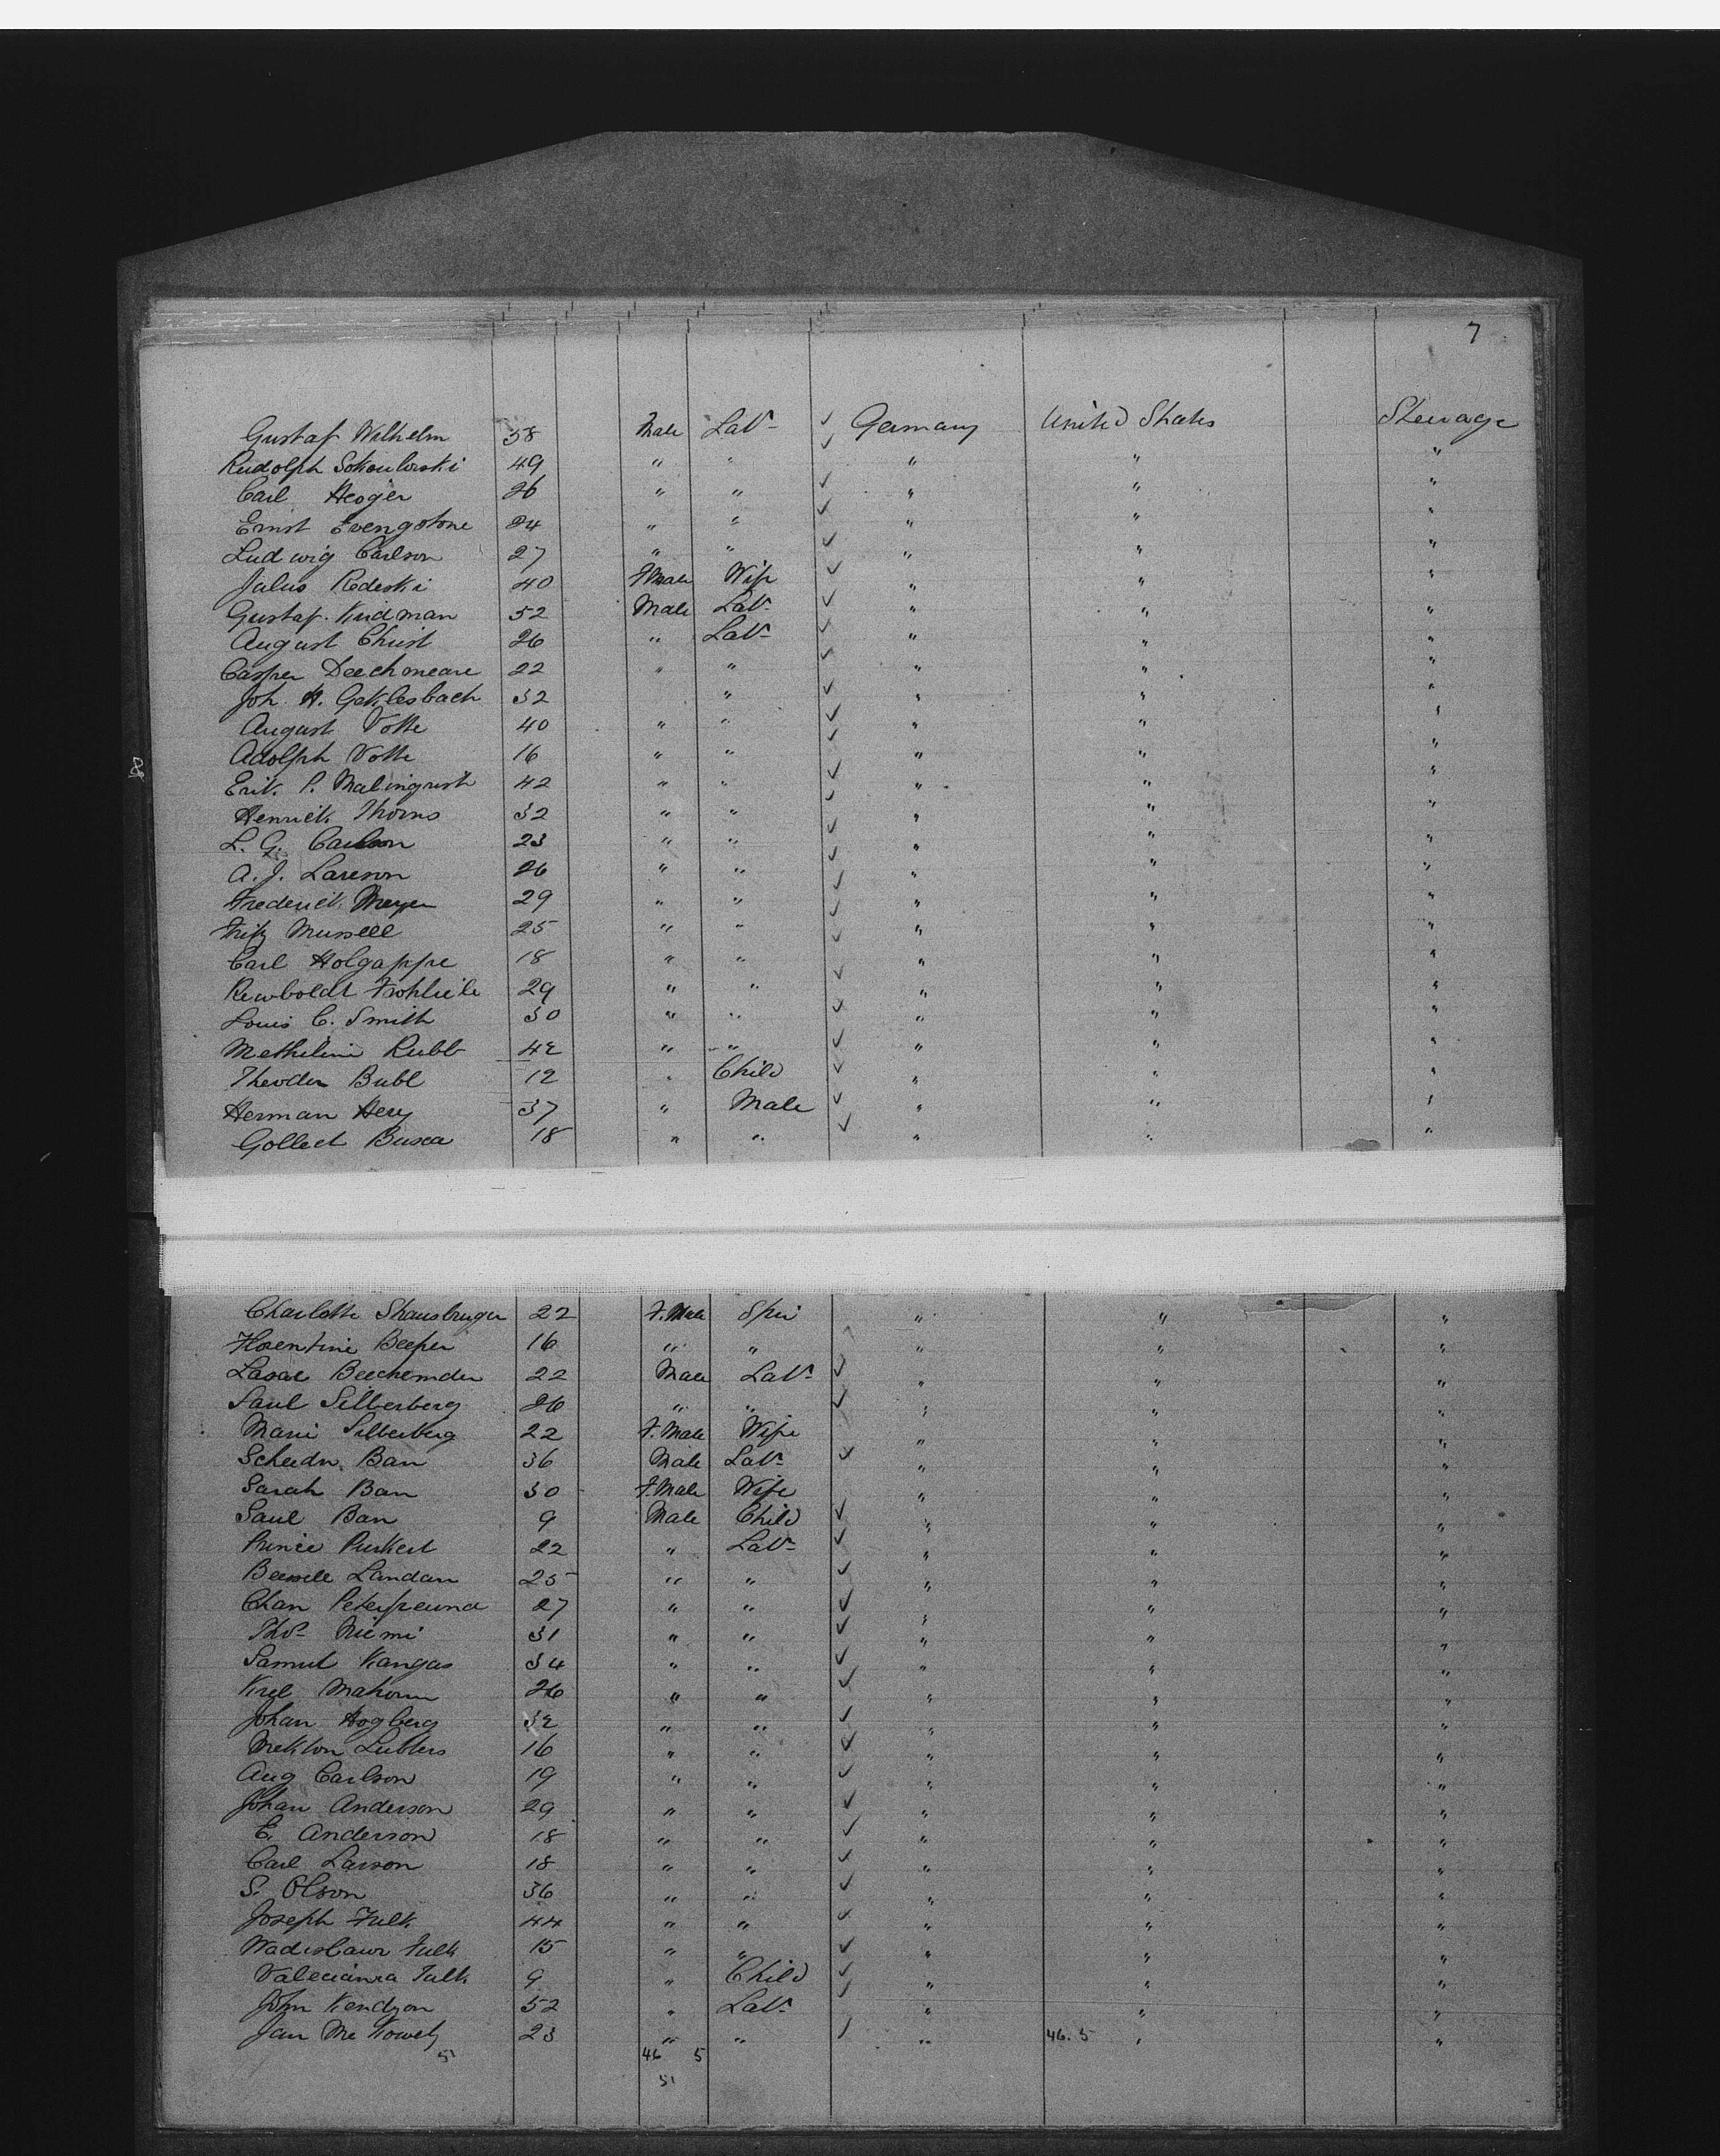 7
Gustaf Wilhelm 58 Male Labr ✓ Germany United States Steerage
Rudolph Sokoulowski 49 " " ✓ " " "
Carl Heoger 26 " " ✓ " " "
Ernst Evengstone 24 " " ✓ " " "
Ludwig Carlson 27 " " ✓ " " "
Julus Redeski 40 F Male Wife ✓ " " "
Gustaf Kudman 52 Male Labr ✓ " " "
August Christ 26 " Labr ✓ " " "
Casper Deechmeare 22 " " ✓ " " "
Joh. H. Geklesbach 32 " ✓ " " "
August Votte 40 " " ✓ " " "
Adolph Votte 16 " " ✓ " " "
Erik. P. Malinqrist 42 " " ✓ " " "
Henrick Thorns 32 " " ✓ " " "
L. G. Carlson 23 " " ✓ " " "
A. J. Lareson 26 " " ✓ " " "
Frederick Meyer 29 " " ✓ " " "
Fritz Mussell 25 " " ✓ " " "
Carl Holgappe 18 " " ✓ " " "
29 " " ✓ " " "
Louis C. Smith 30 " " ✓ " " "
Methilini Rubb 42 " " ✓ " " "
Theoder Bubl 12 " Child ✓ " " "
Herman Hery 37 " Male ✓ " " "
Gollect Busca 18 " " ✓ " " "
Charlotte Shausbruger 22 F. Male Spin " " "
Florentine Beeper 16 " " " " "
Lasar Beechemder 22 Male Labr ✓ " " "
Saul Silberberg 26 " " ✓ " " "
Marie Silberberg 22 F. Male Wife " " "
Scheedn Ban 36 Male Labr ✓ " " "
Sarah Ban 30 F. Male Wife " " "
Saul Ban 9 Male Child ✓ " " "
Prince Purkert 22 " Labr ✓ " " "
Bessele Landan 25 " " ✓ " " "
Chan Peterfreund 27 " " ✓ " " "
Thos Niemi 31 " " ✓ " " "
Samul Kangas 34 " " ✓ " " "
Krel Mahonn 26 " " ✓ " " "
Johan Hogberg 32 " " ✓ " " "
Mekton Lubters 16 " " ✓ " " "
Aug Carlson 19 " " ✓ " " "
Johan Anderson 29 " " ✓ " " "
E. Anderson 18 " " ✓ " " "
Carl Larson 18 " " ✓ " " "
S. Olson 36 " " ✓ " " "
Joseph Fulk 44 " " ✓ " " "
Wadislawr Fulk 15 " " ✓ " " "
Valecianra Fulk 9 " Child ✓ " " "
John Kendzon 52 " Labr " " "
Jan Me Kowety 23 " " ✓ " 46. 5 " "
5 46 5
51